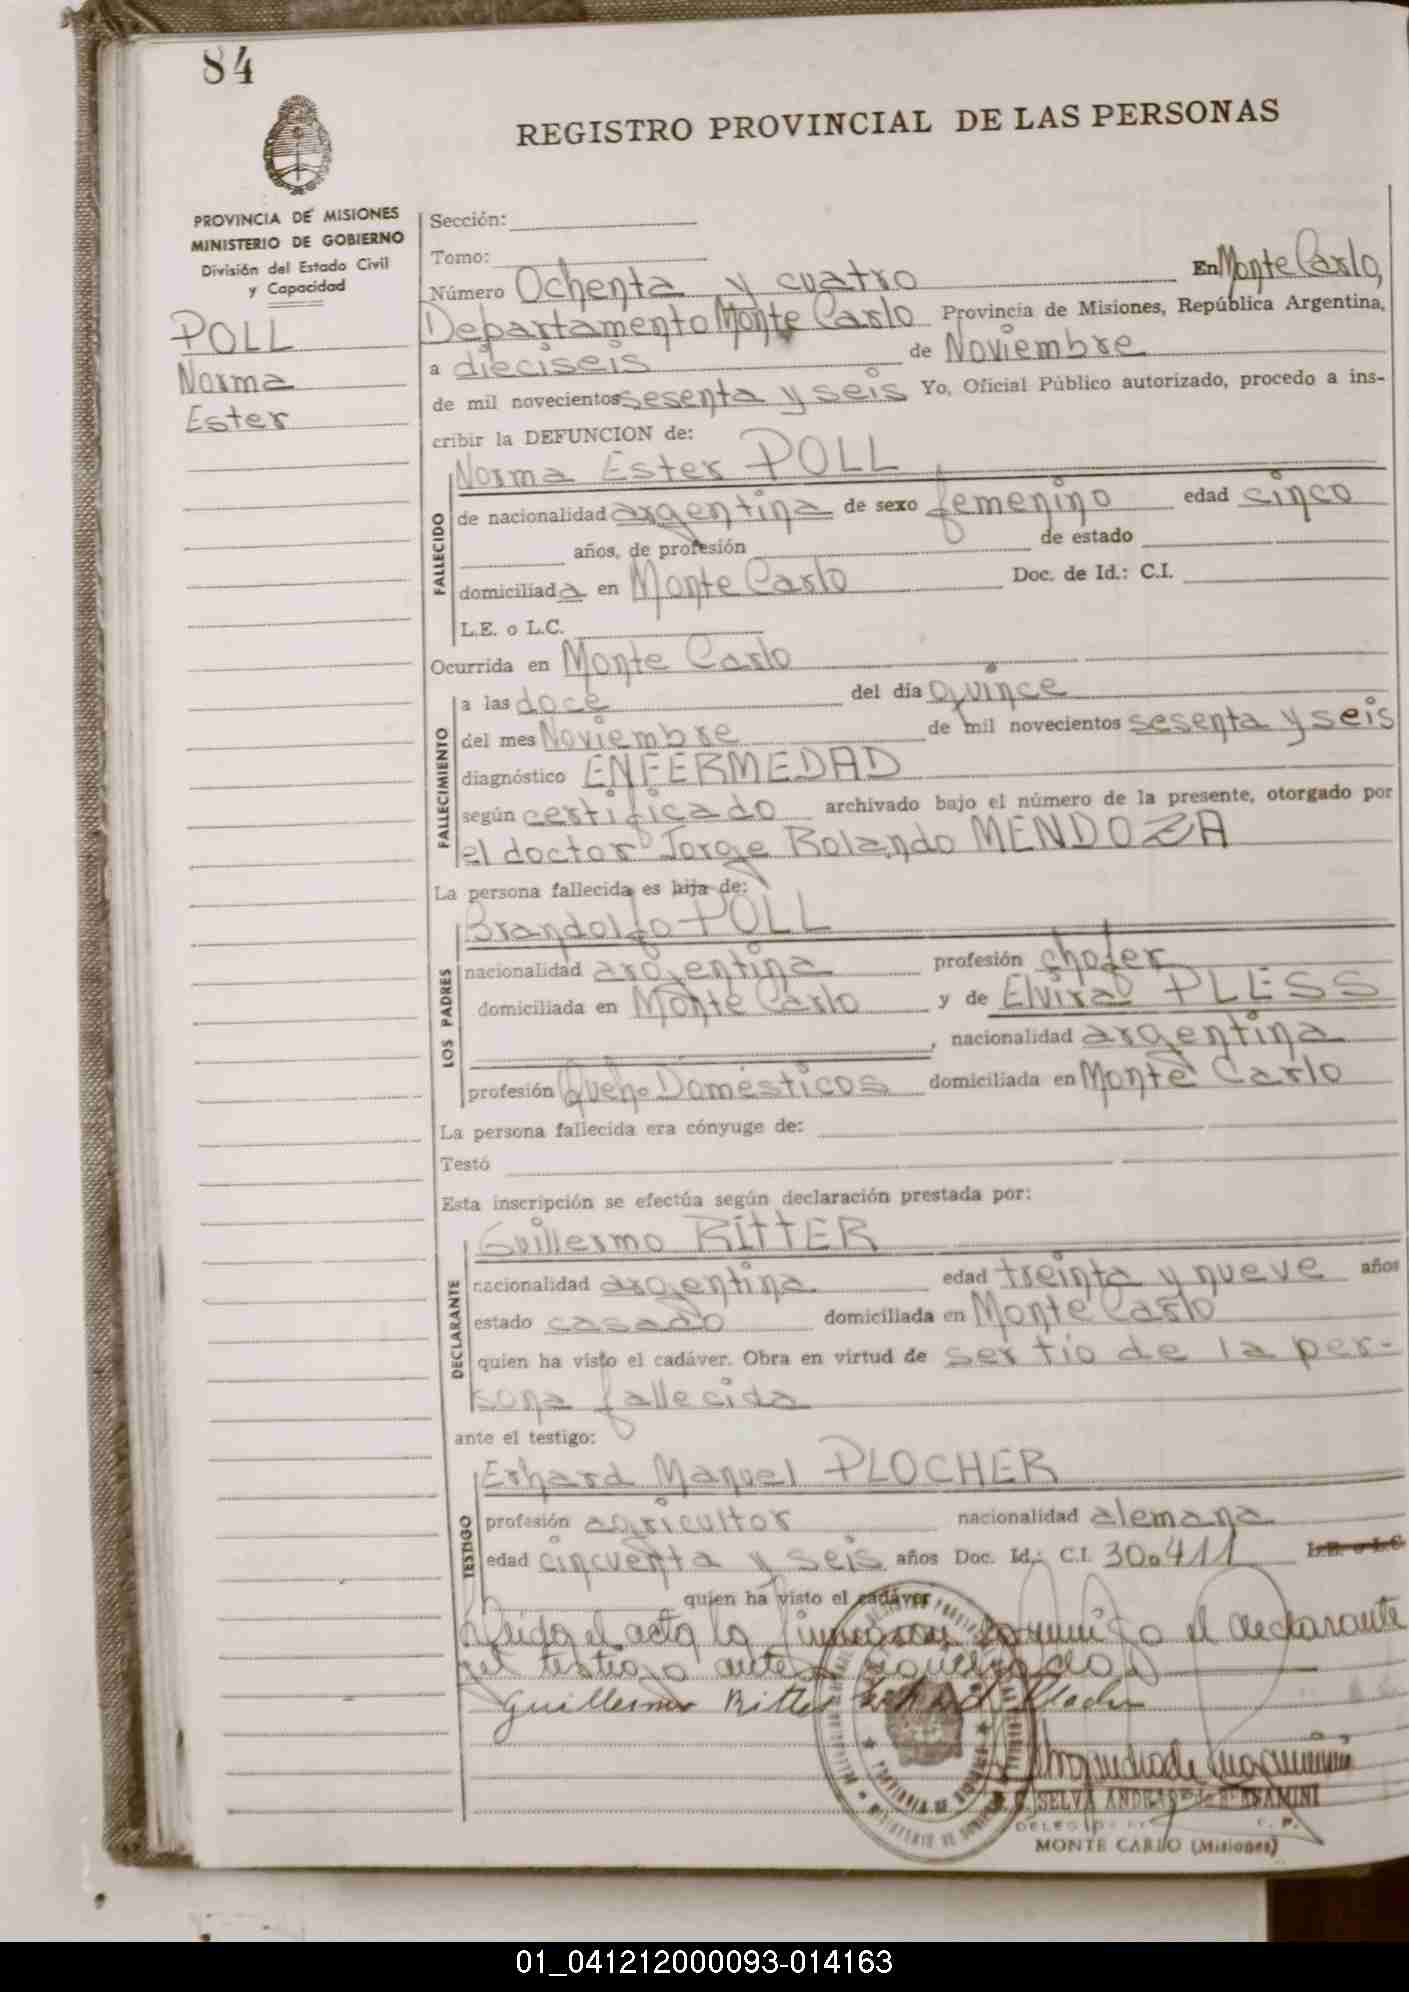 84
REGISTRO PROVINCIAL DE LAS PERSONAS
PROVINCIA DE MISIONES
MINISTERIO DE GOBIERNO
División del Estado Civil
y Capacidad
POLL
Norma
Ester
Sección:
Tomo:
Número Ochenta y cuatro En Monte Carlo,
Departamento Monte Carlo Provincia de Misiones, República Argentina,
a dieciseis de Noviembre
de mil novecientos sesenta y seis Yo, Oficial Público autorizado, procedo a ins-
cribir la DEFUNCION de:
FALLECIDO
Norma Ester POLL
de nacionalidad argentina de sexo femenino edad cinco
años, de profesión de estado
domiciliada en Monte Carlo Doc. de Id.: C.I.
L.E. o L.C.
Ocurrida en Monte Carlo
FALLECIMIENTO
a las doce del día quince
del mes Noviembre de mil novecientos sesenta y seis
diagnóstico ENFERMEDAD
según certificado archivado bajo el número de la presente, otorgado por
el doctor Jorge Rolando MENDOZA
La persona fallecida es hija de:
LOS PADRES
Brandolfo POLL
nacionalidad argentina profesión chofer
domiciliada en Monte Carlo y de Elvira PLESS
, nacionalidad argentina
profesión Queh. Domésticos domiciliada en Monte Carlo
La persona fallecida era cónyuge de:
Testó
Esta inscripción se efectúa según declaración prestada por:
DECLARANTE
Guillermo RITTER
nacionalidad argentina edad treinta y nueve años
estado casado domiciliada en Monte Carlo
quien ha visto el cadáver. Obra en virtud de ser tío de la per-
sona fallecida
ante el testigo:
TESTIGO
Erhard Manuel PLOCHER
profesión agricultor nacionalidad alemana
edad cincuenta y seis años Doc. Id.: C.I. 30.411 L.E. o L.C
quien ha visto el cadáver
el acta la el declarante
testigo ante
Guillermo Ritter Erhard Plocher
SELVA
MONTE CARLO (Misiones)
01_041212000093-014163